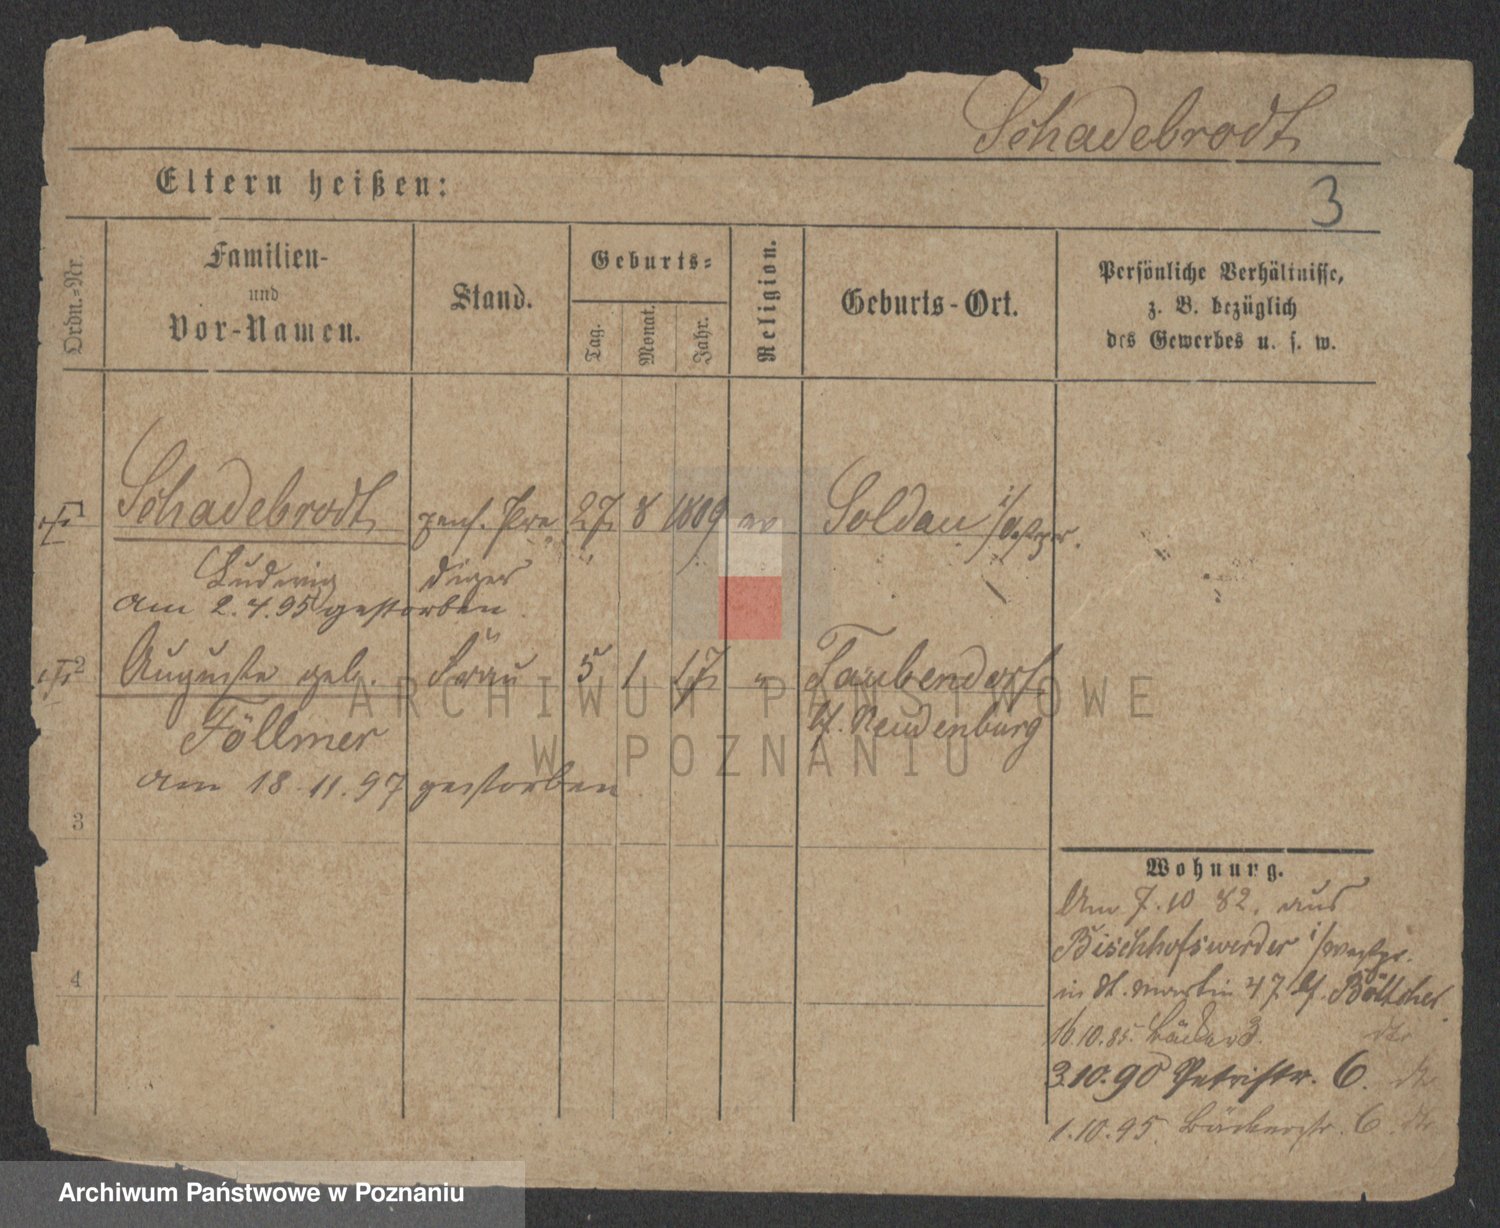 Schadebrodt
Eltern heißen:
3
Ordn.-Nr.
Familien-
und
Vor-Namen.
Stand.
Geburts-
Tag.
Monat.
Jahr.
Religion.
Geburts-Ort.
Persönliche Verhältnisse,
z. B. bezüglich
des Gewerbes u. s. w.
1 Schadebrodt pens. Pre 27 8 1809 ev Soldau i/Ostpr.
Ludwig diger
am 2.4.95 gestorben.
2 Auguste geb. Frau 5 1 17 " Taubendorf
Föllmer Kr. Neidenburg
am 18.11.97 gestorben
3
4
Wohnung.
Am 7.10 82. aus
Bischhofswerder i/Westpr.
in St. Martin 47 Böttcher.
16.10.85. Bäcker 3. dto
3.10.90 Petristr. 6. dto
1.10.95. Bäckerstr. 6. dto
ARCHIWUM PAŃSTWOWE
W POZNANIU
Archiwum Państwowe w Poznaniu